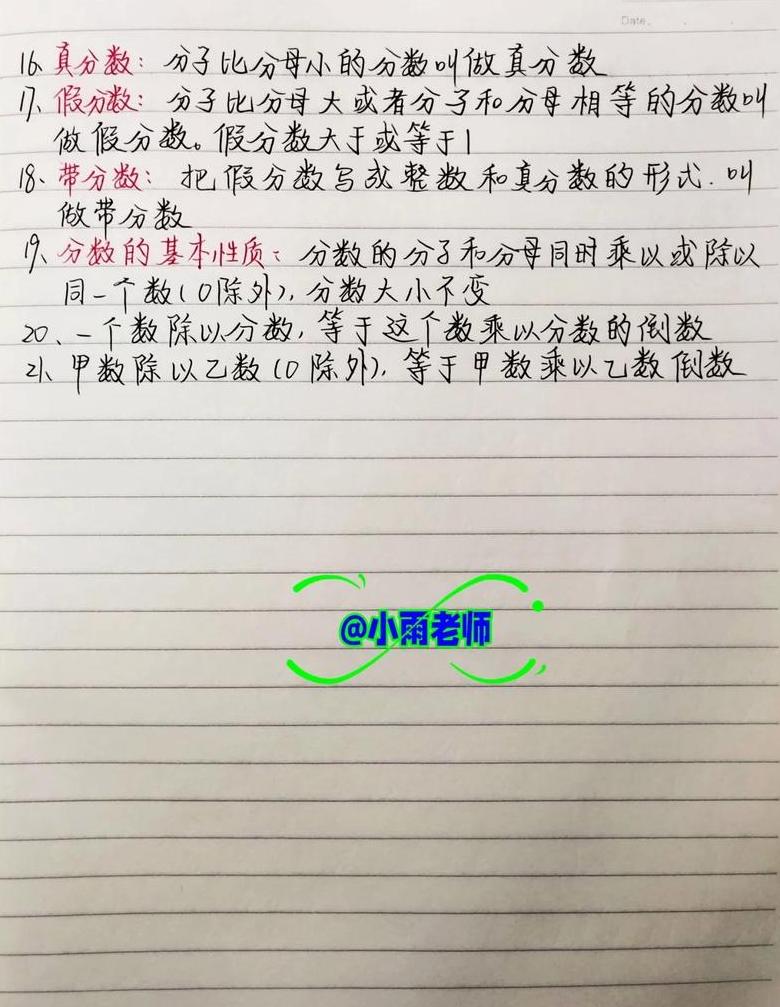 Date.
16、真分数：分子比分母小的分数叫做真分数
17、假分数：分子比分母大或者分子和分母相等的分数叫
做假分数。假分数大于或等于1
18、带分数：把假分数写成整数和真分数的形式.叫
做带分数
19、分数的基本性质：分数的分子和分母同时乘以或除以
同一个数(0除外),分数大小不变
20、一个数除以分数,等于这个数乘以分数的倒数
21、甲数除以乙数(0除外),等于甲数乘以乙数倒数
@小雨老师